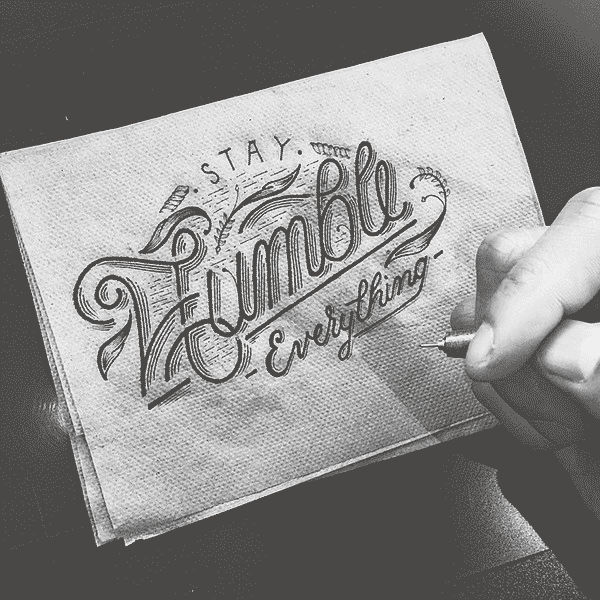 · STAY ·
Humble
- Everything -